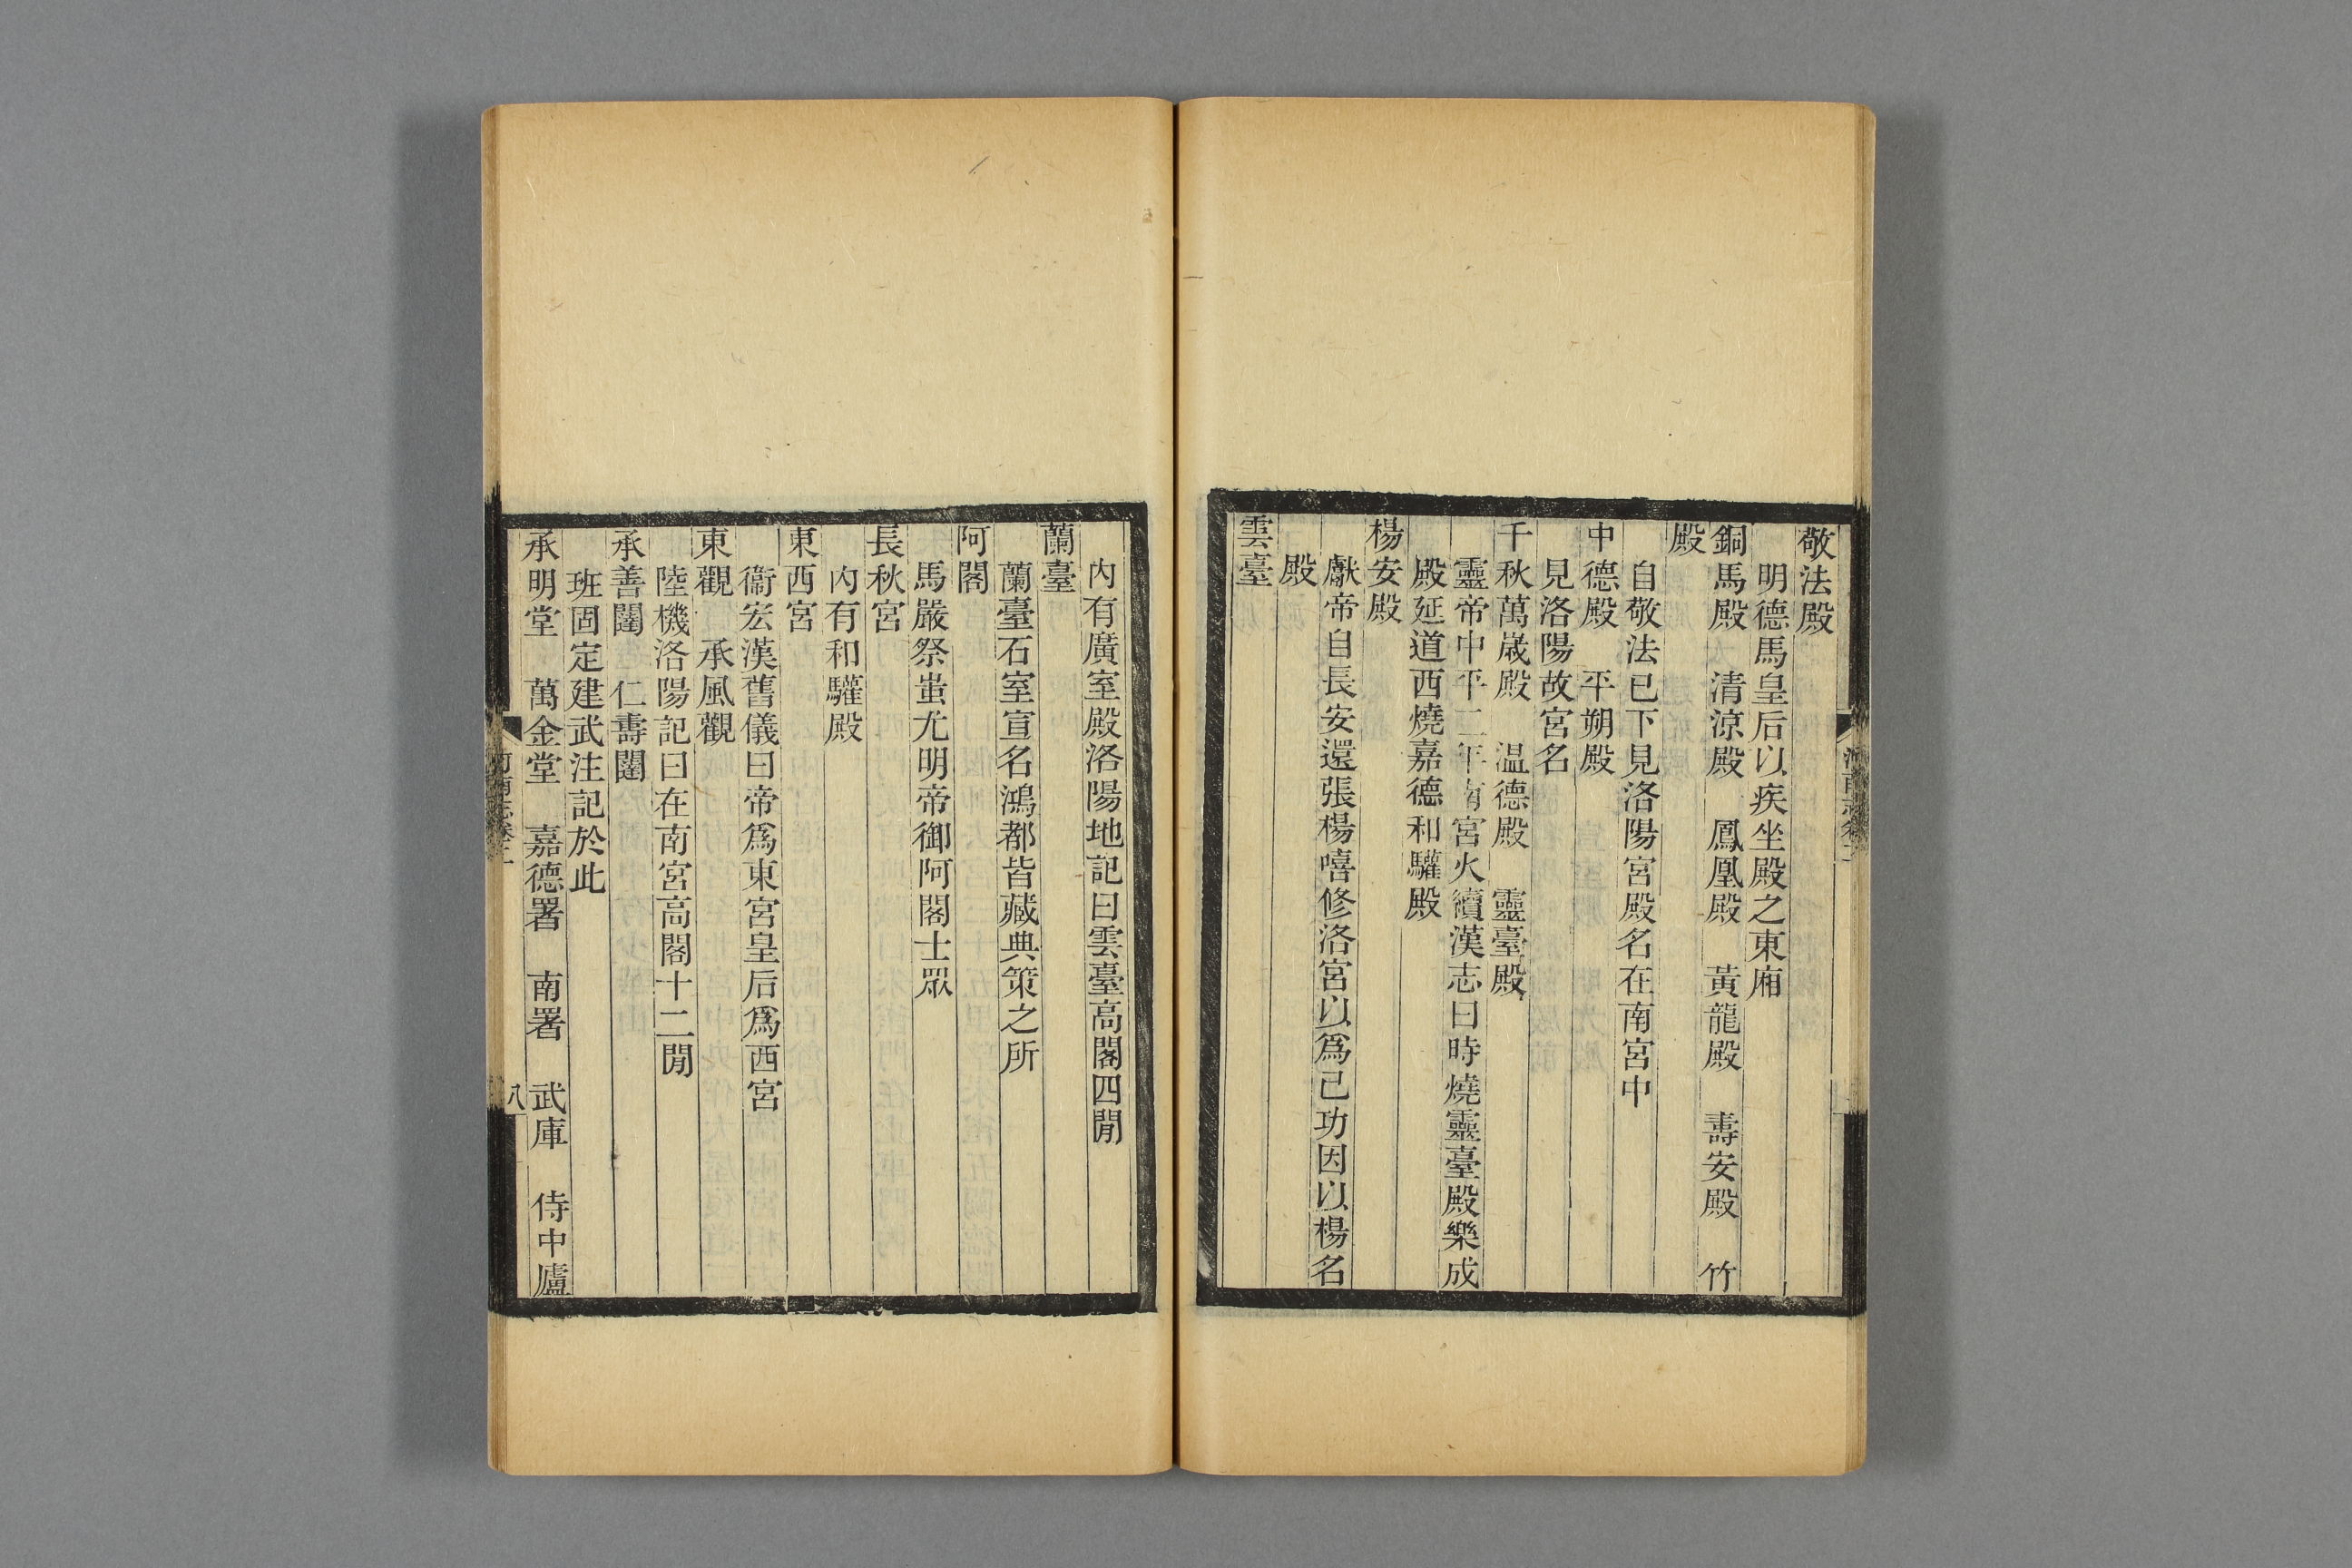 敬法殿
明德馬皇后以疾坐殿之東廂
銅馬殿　清涼殿　鳳凰殿　黃龍殿　壽安殿　竹
殿
自敬法已下見洛陽宮殿名在南宮中
中德殿　平朔殿
見洛陽故宮名
千秋萬歲殿　温德殿　靈臺殿
靈帝中平二年南宮火續漢志曰時燒靈臺殿樂成
殿延道西燒嘉德和驩殿
楊安殿
獻帝自長安還張楊嘻修洛宮以爲己功因以楊名
殿
雲臺
內有廣室殿洛陽地記曰雲臺高閣四閒
蘭臺
蘭臺石室宣名鴻都皆藏典策之所
阿閣
馬嚴祭蚩尤明帝御阿閣士眾
長秋宮
內有和驩殿
東西宮
衞宏漢舊儀曰帝爲東宮皇后爲西宮
東觀　承風觀
陸機洛陽記曰在南宮高閣十二閒
承善闥　仁壽闥
班固定建武注記於此
承明堂　萬金堂　嘉德署　南署　武庫　侍中廬
八